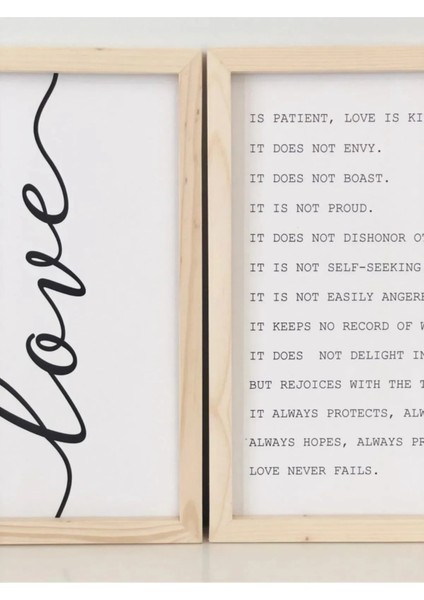 love
IS PATIENT, LOVE IS KI
IT DOES NOT ENVY.
IT DOES NOT BOAST.
IT IS NOT PROUD.
IT DOES NOT DISHONOR OT
IT IS NOT SELF-SEEKING
IT IS NOT EASILY ANGERE
IT KEEPS NO RECORD OF W
IT DOES  NOT DELIGHT IN
BUT REJOICES WITH THE T
IT ALWAYS PROTECTS, ALW
ALWAYS HOPES, ALWAYS PR
LOVE NEVER FAILS.